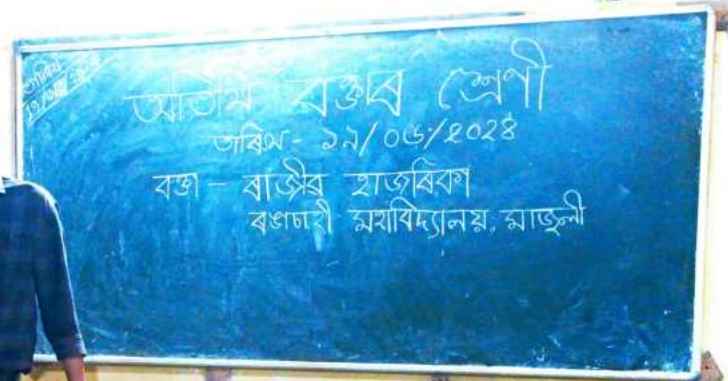 তাৰিখ
অতিথি বক্তাৰ শ্ৰেণী
তাৰিখ - ১৯/০৬/২০২৪
বক্তা - ৰাজীৱ হাজৰিকা
ৰঙাচাহী মহাবিদ্যালয়, মাজুলী